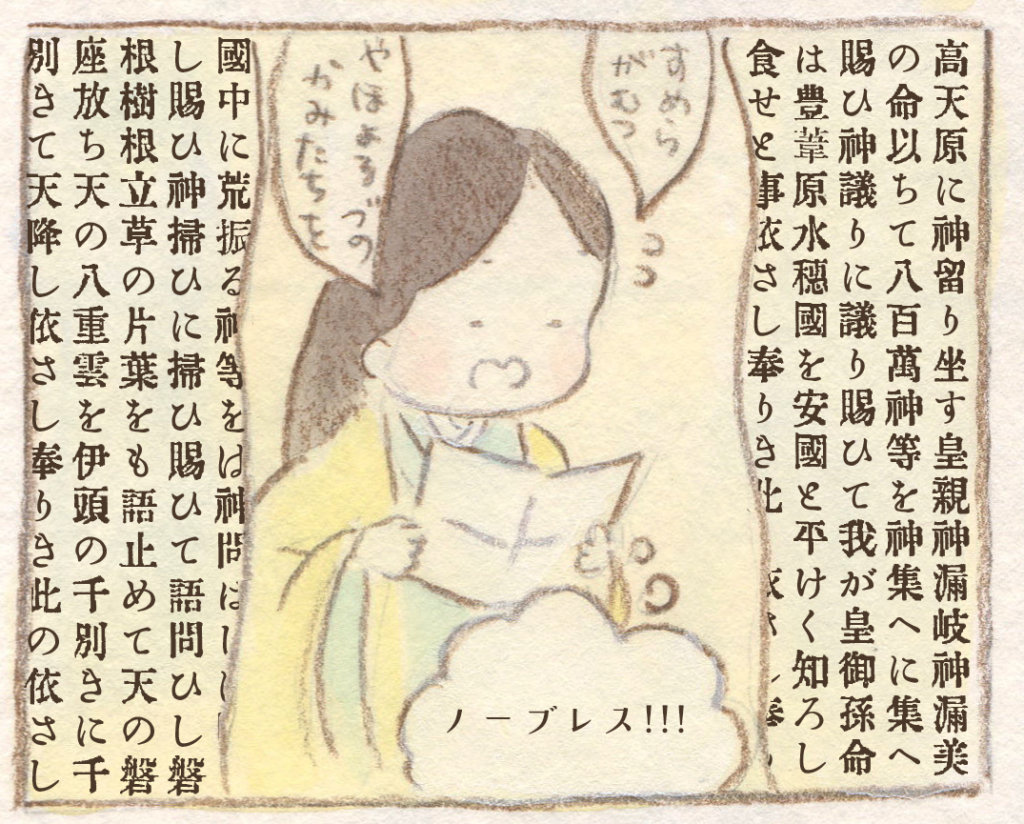 高天原に神留り坐す皇親神漏岐神漏美
の命以ちて八百萬神等を神集へに集へ
賜ひ神議りに議り賜ひて我が皇御孫命
は豊葦原水穂國を安國と平けく知ろし
食せと事依さし奉りき此 依さし奉
すめら
がむつ
やほよろづの
かみたちを
ノーブレス!!!
國中に荒振る神等をは神問はし
し賜ひ神掃ひに掃ひ賜ひて語問ひし磐
根樹根立草の片葉をも語止めて天の磐
座放ち天の八重雲を伊頭の千別きに千
別きて天降し依さし奉りき此の依さし